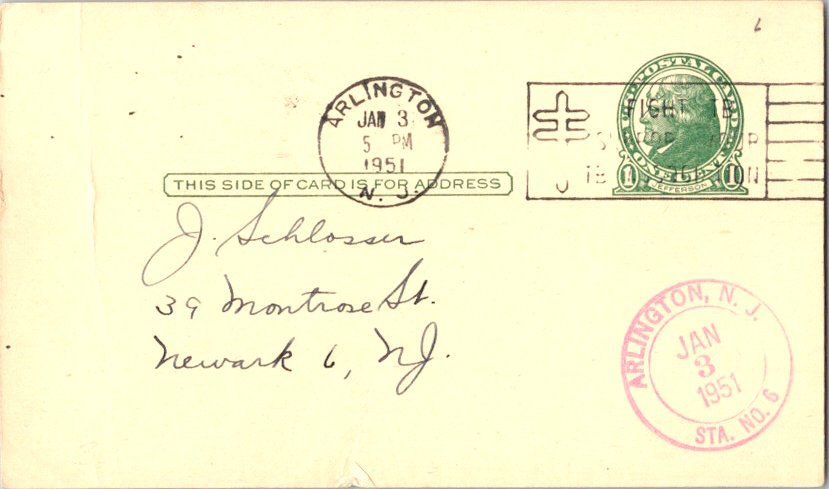 6
ARLINGTON
JAN 3
5 PM
1951
N. J.
FIGHT TB
U.S. POSTAL CARD
ONE CENT
1 JEFFERSON 1
THIS SIDE OF CARD IS FOR ADDRESS
J. Schlosser
39 Montrose St.
Newark 6, NJ.
ARLINGTON, N. J.
JAN
3
1951
STA. NO. 6